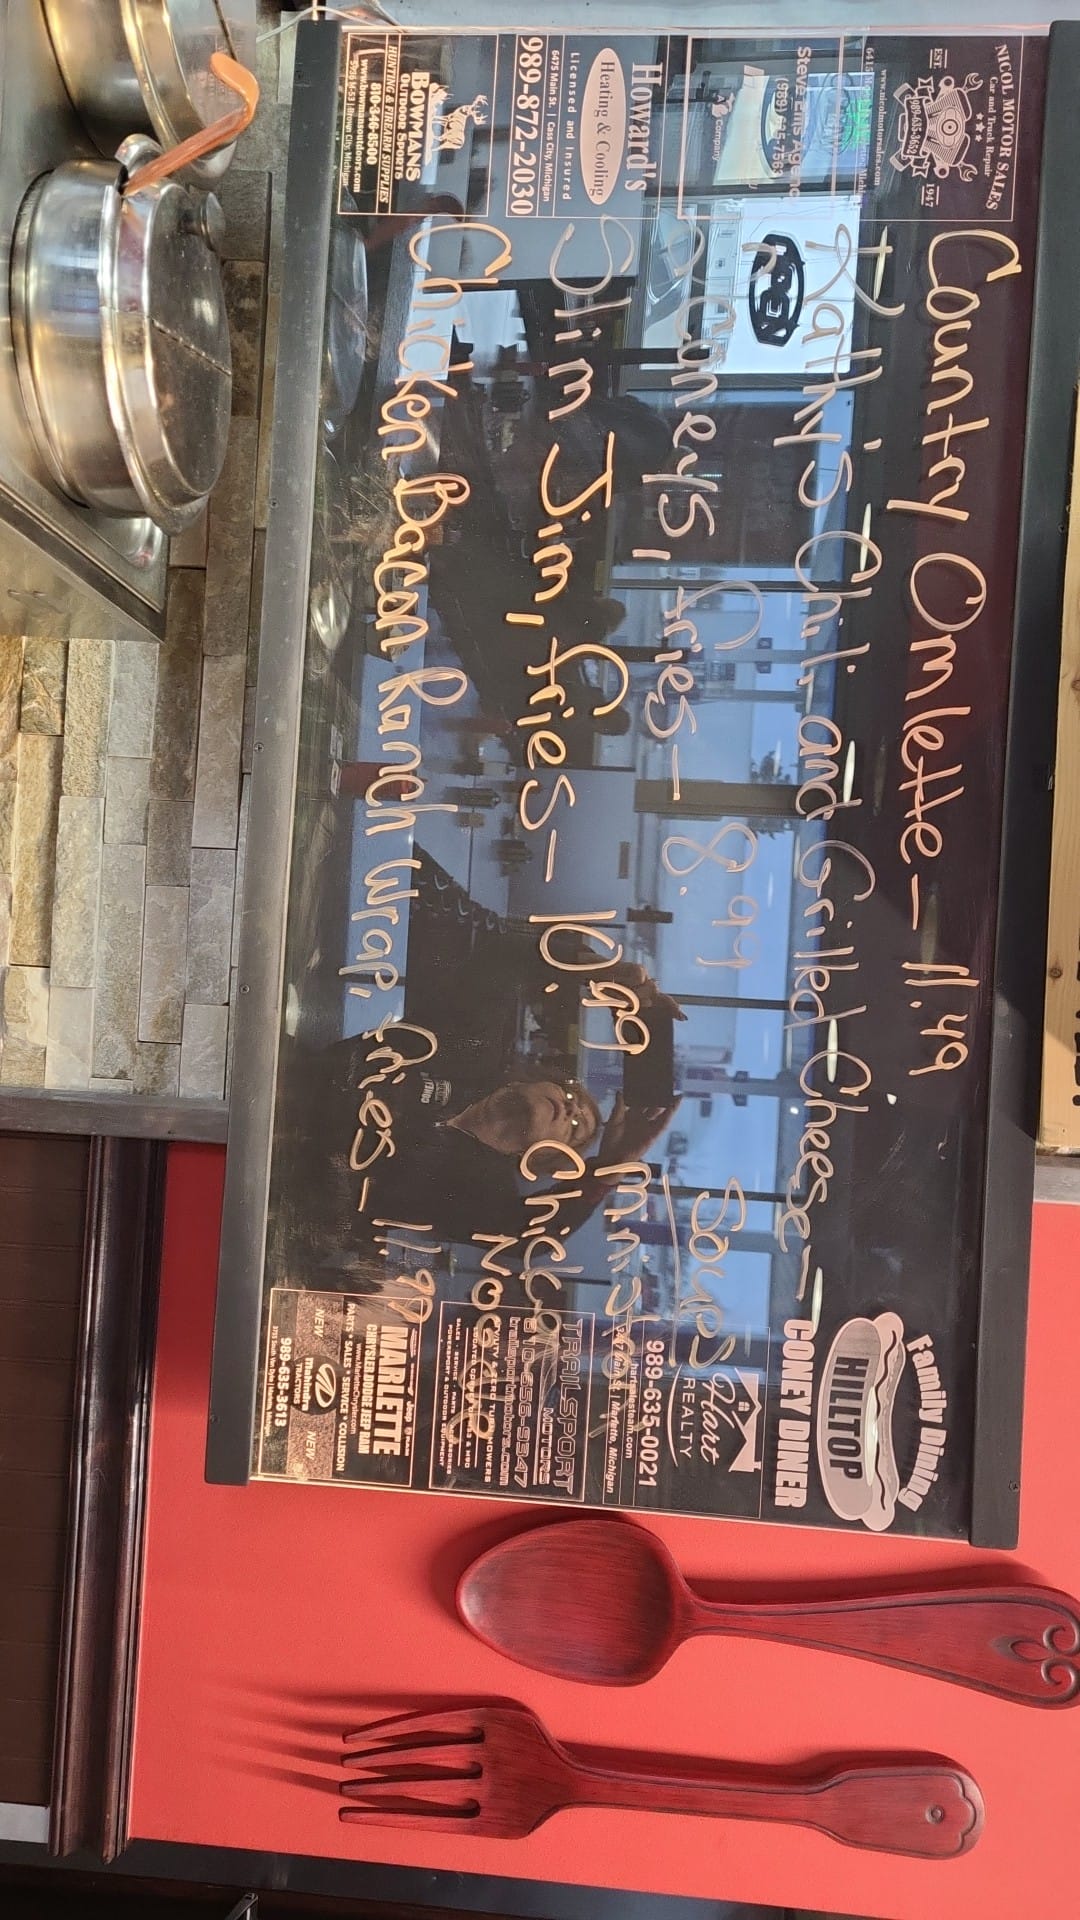 NICOL MOTOR SALES
Car and Truck Repair
EST
1947
989-635-3652
www.nicolmotorsales.com
Steve Ellis Agency
A Company
Howard's
Heating & Cooling
Licensed and Insured
6475 Main St. | Cass City, Michigan
989-872-2030
BOWMANS
OUTDOOR SPORTS
HUNTING & FIREARM SUPPLIES
810-346-6500
www.bowmansoutdoors.com
Country Omlette - 11.49
Kathy's Chili and Grilled Cheese -
2 Coneys, fries - 8.99
Slim Jim, fries - 10.99
Chicken Bacon Ranch Wrap, fries - 11.99
Soups
Minist
Chicken
Noodle
Family Dining
HILLTOP
CONEY DINER
Hart
REALTY
989-635-0021
Marlette, Michigan
TRAILSPORT
MOTORS
810-656-9347
MARLETTE
CHRYSLER DODGE JEEP RAM
www.MarletteChrysler.com
PARTS • SALES • SERVICE • COLLISION
NEW mahindra NEW
TRACTORS
989-635-3613